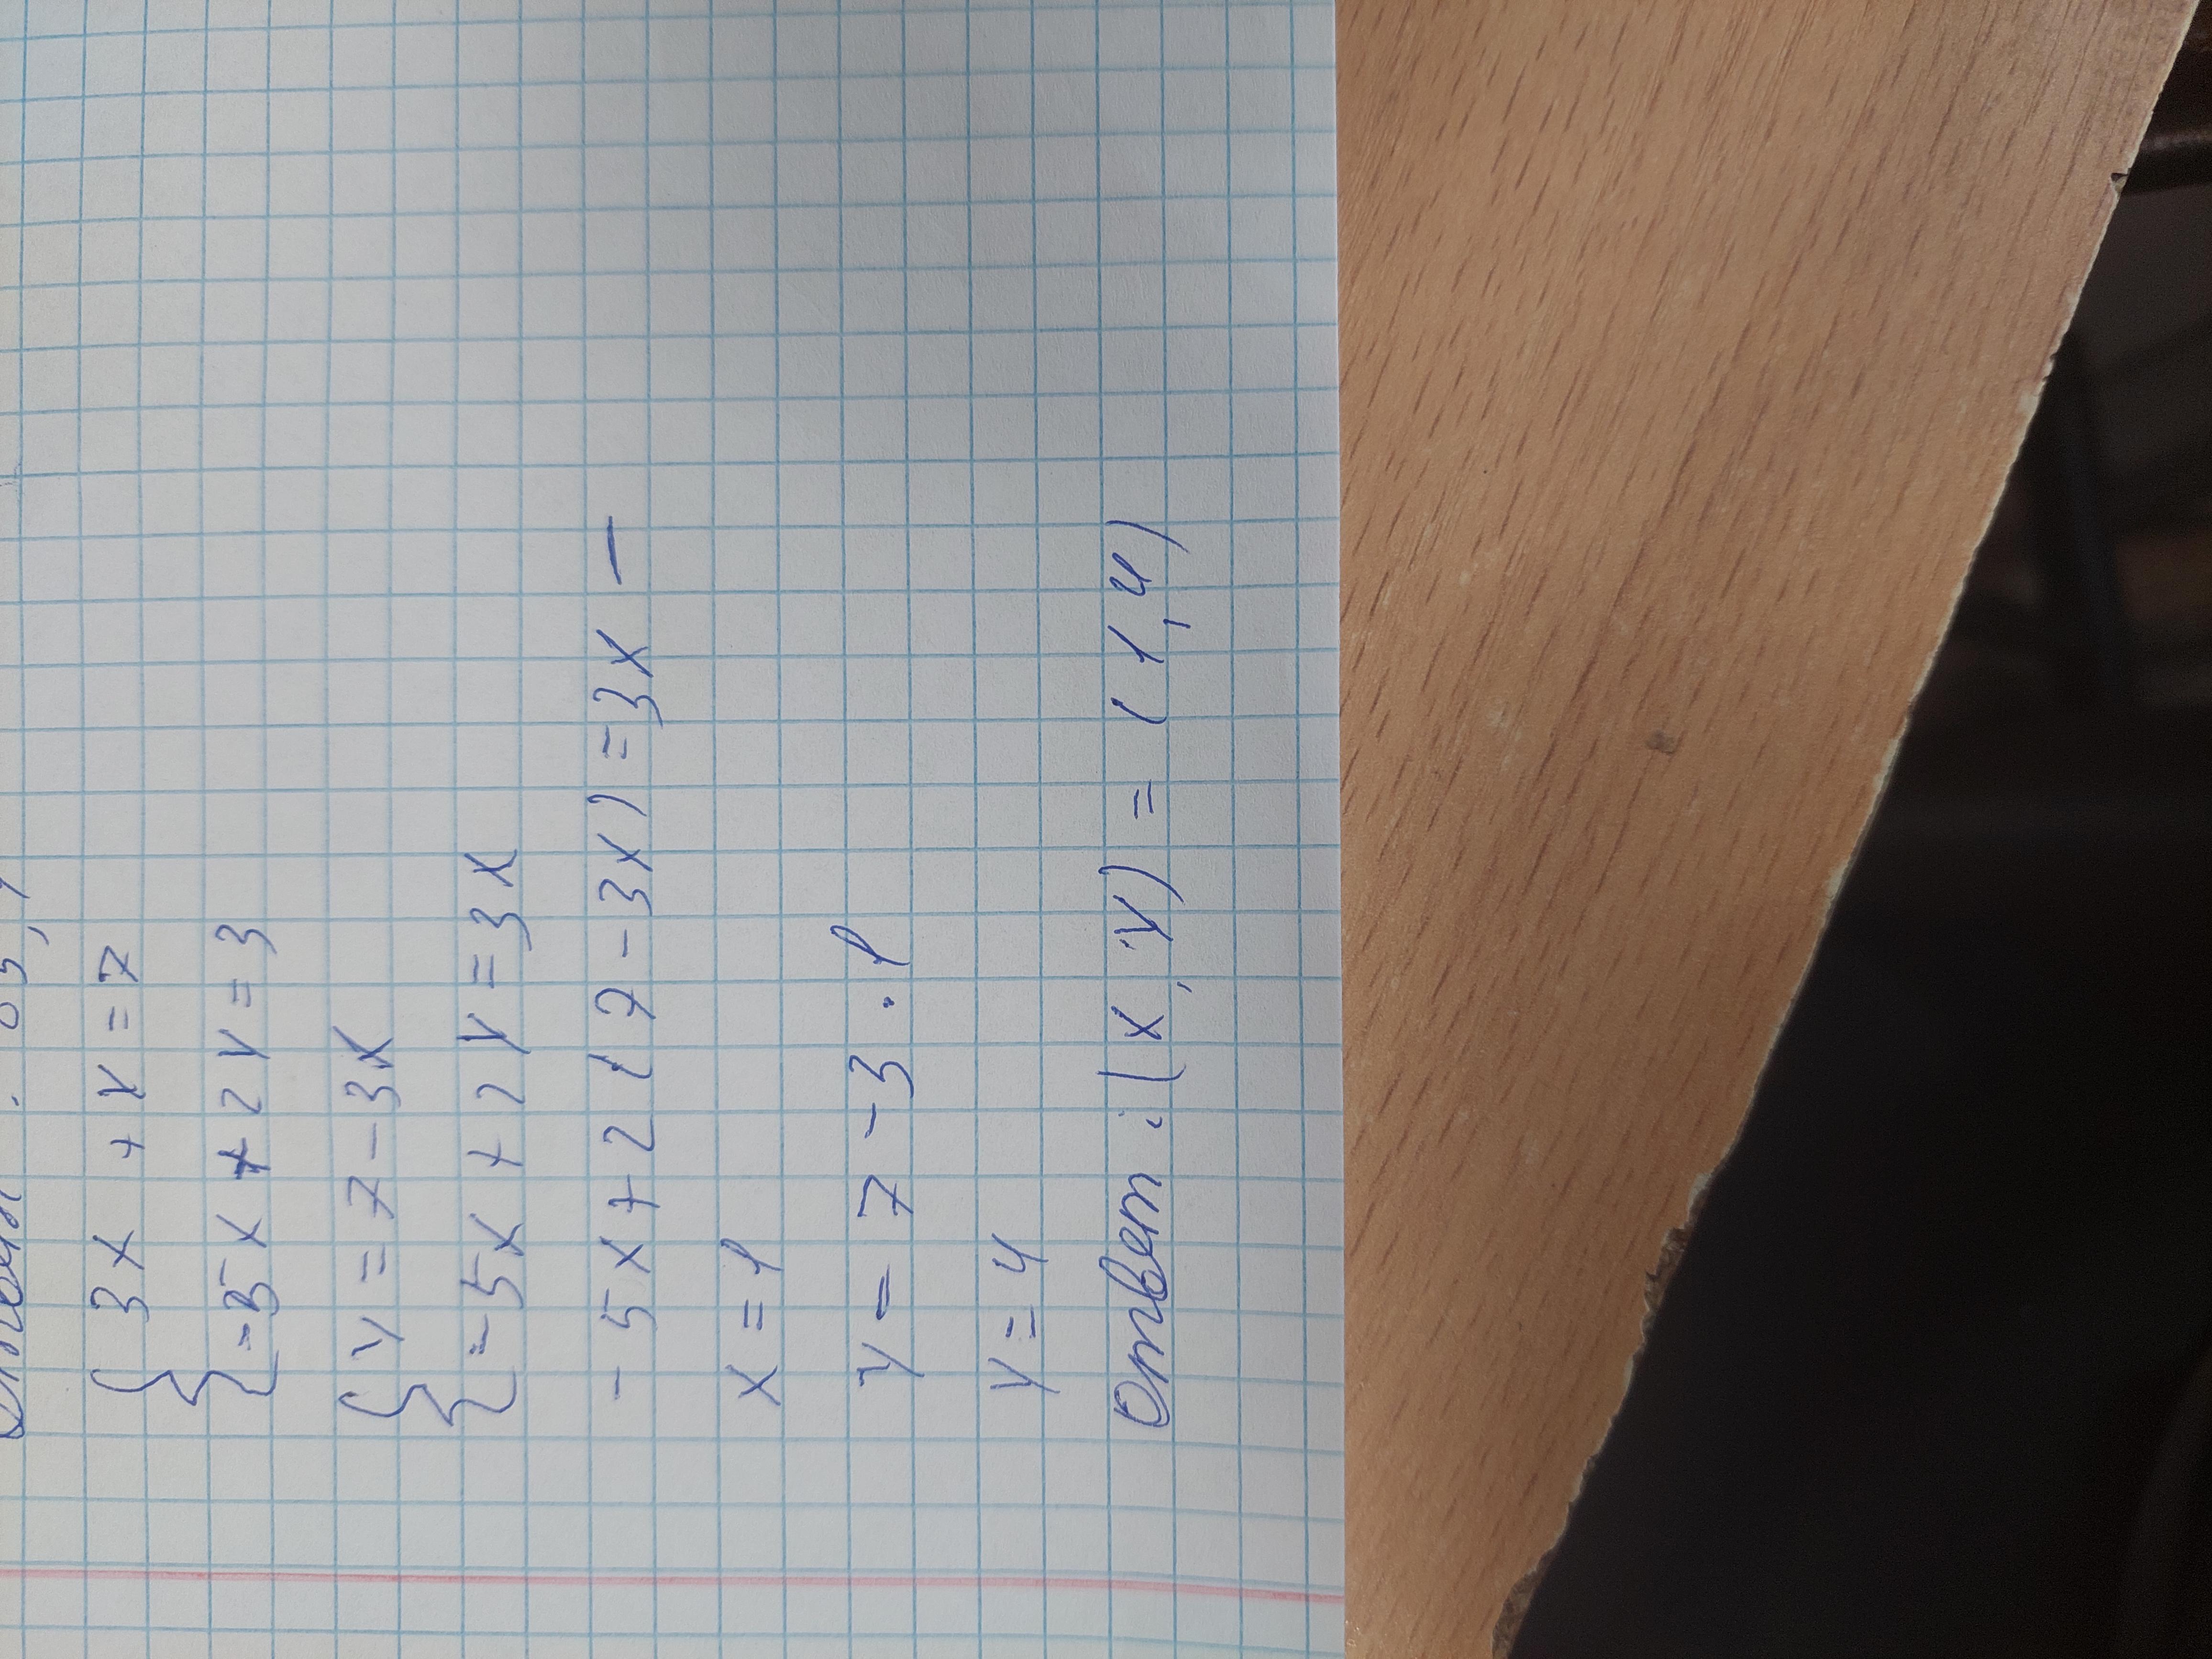 { 3x + y = 7
{ -5x + 2y = 3
{ y = 7 - 3x
{ -5x + 2y = 3x
-5x + 2(7 - 3x) = 3x -
x = 1
y = 7 - 3 · 1
y = 4
Ответ: (x, y) = (1, 4)